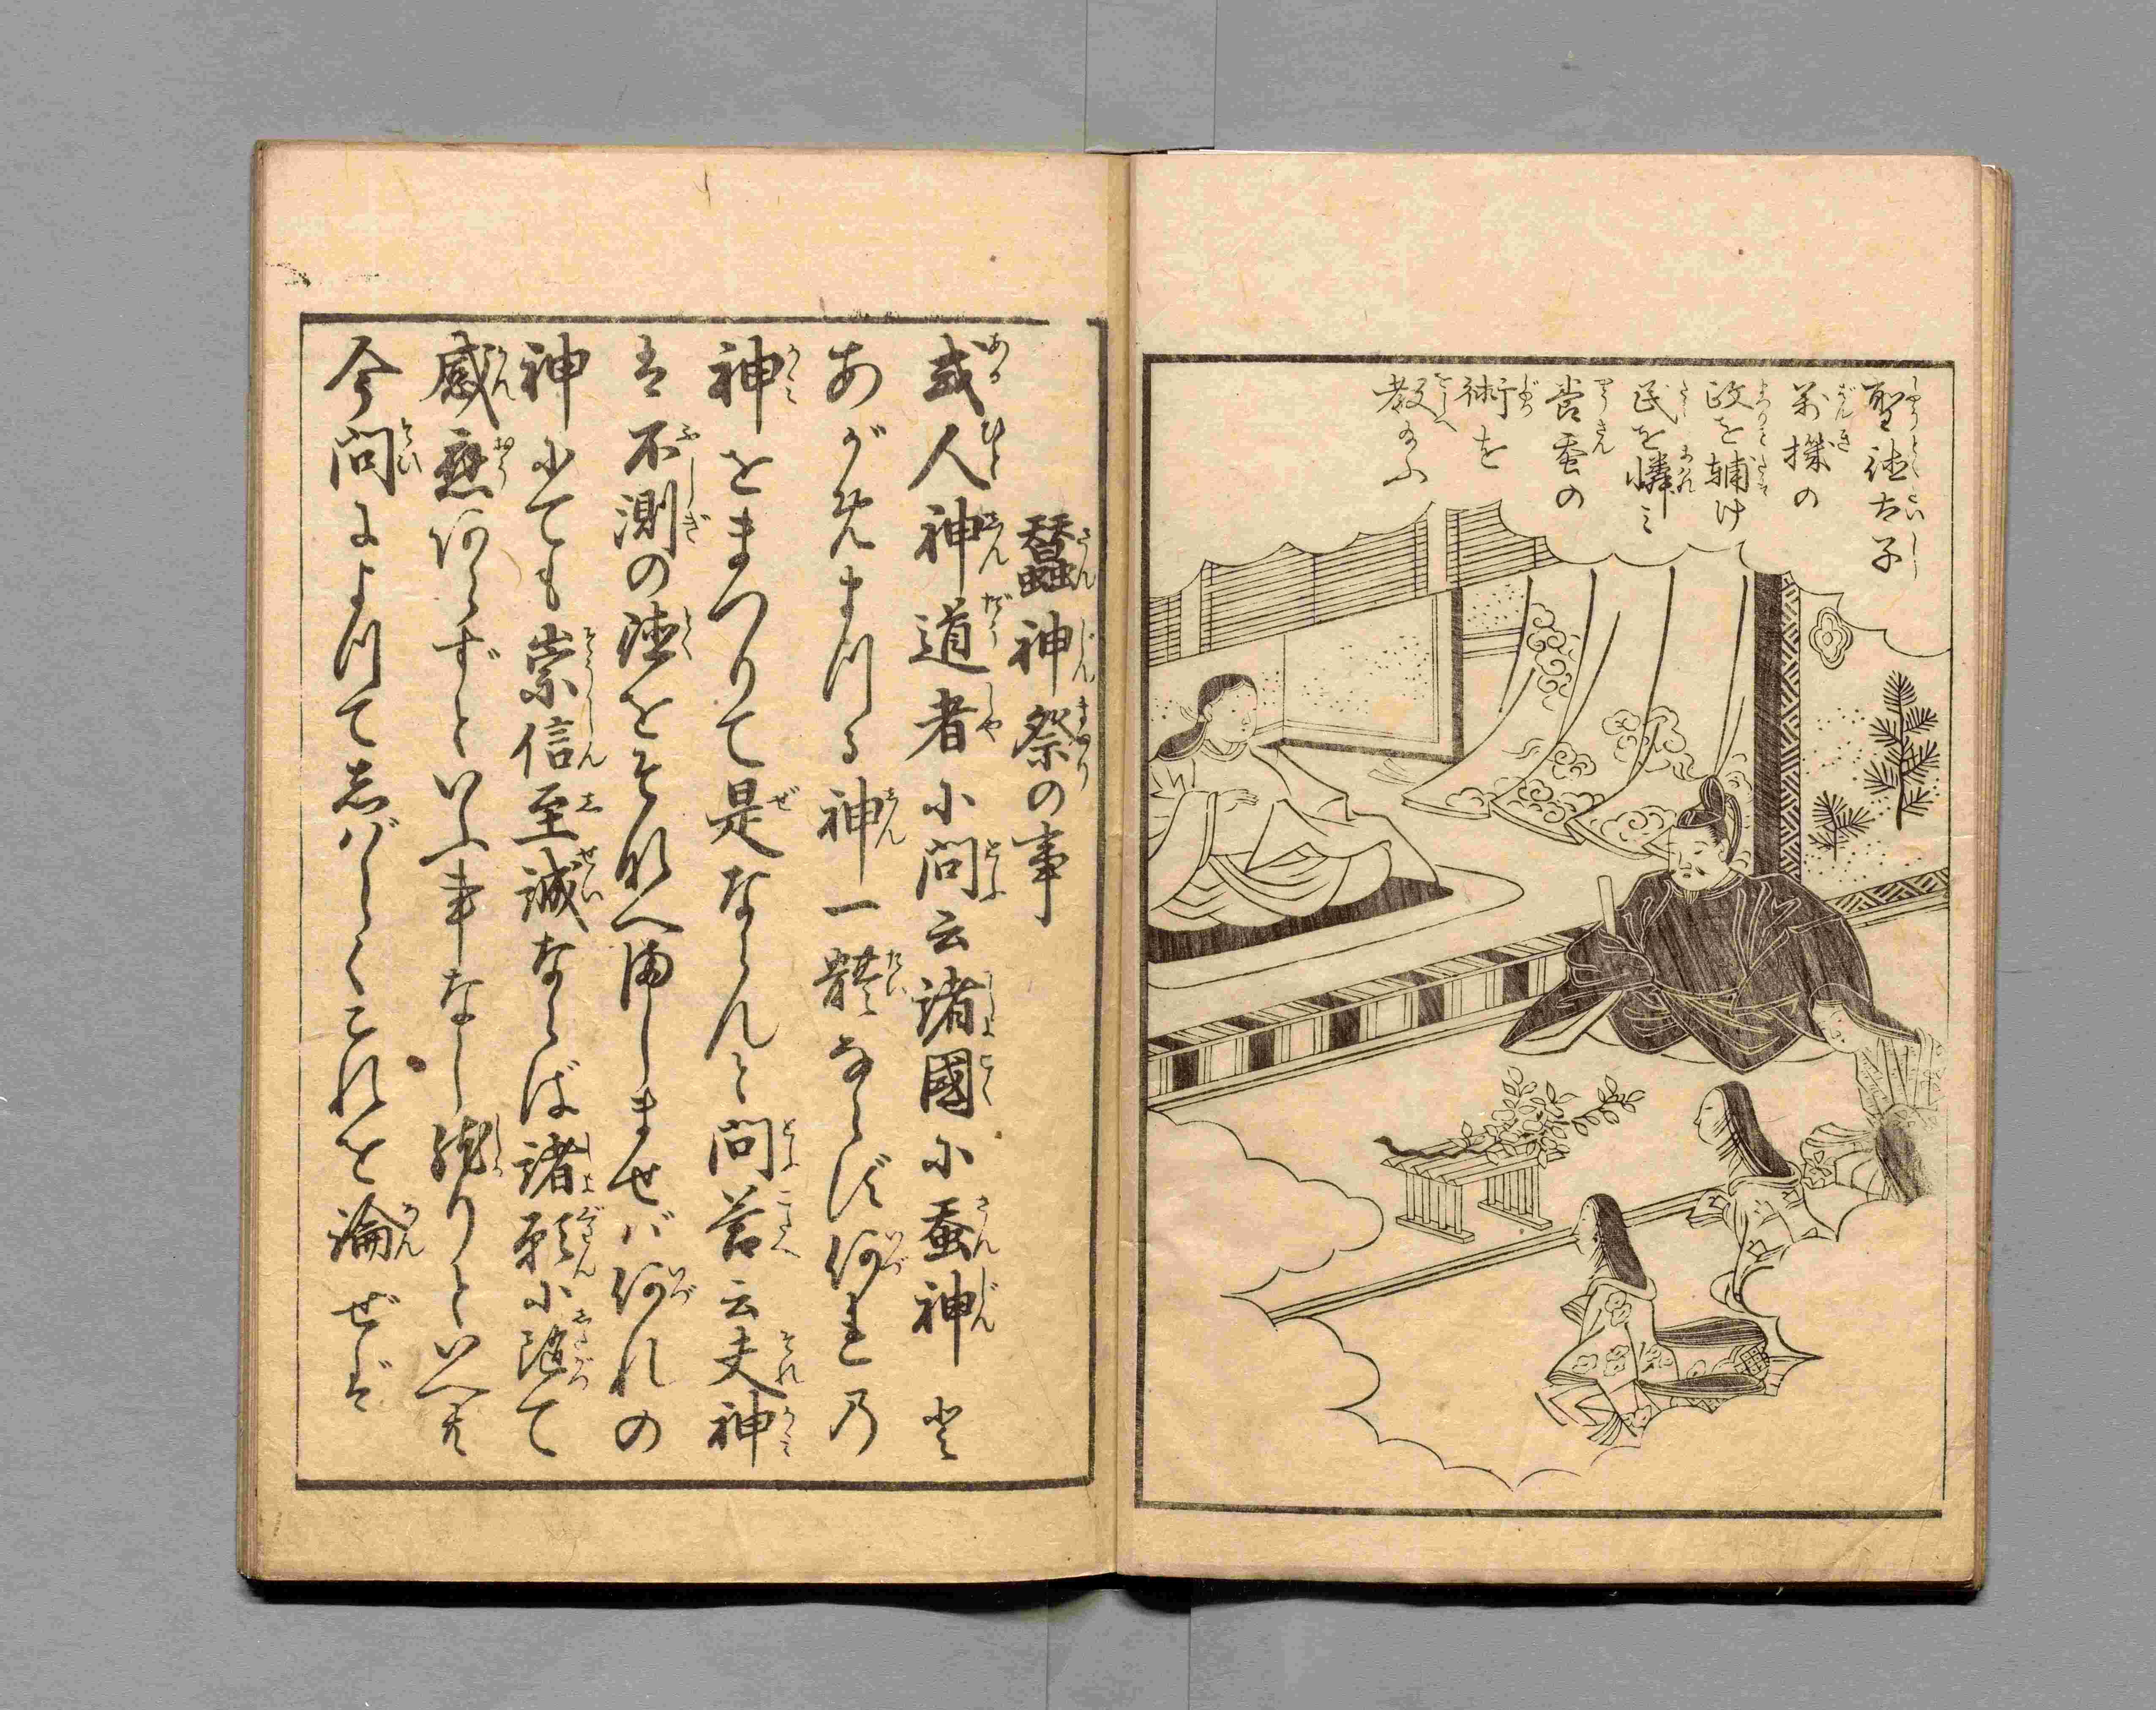 聖徳太子
萬機の
政を輔け
民を憐ミ
営蚕の
術を
教給ふ
蠶神祭の事
或人神道者小問云諸國小蚕神と
あがめまつる神一體ならず何れ乃
神をまつりて是ならんと問答云夫神
は不測の徳をそなへ給しませバ何れの
神にても崇信至誠ならば諸願小随て
感應あらずといふ事なし然りといへども
今問によつて志バらくこれを論ぜば